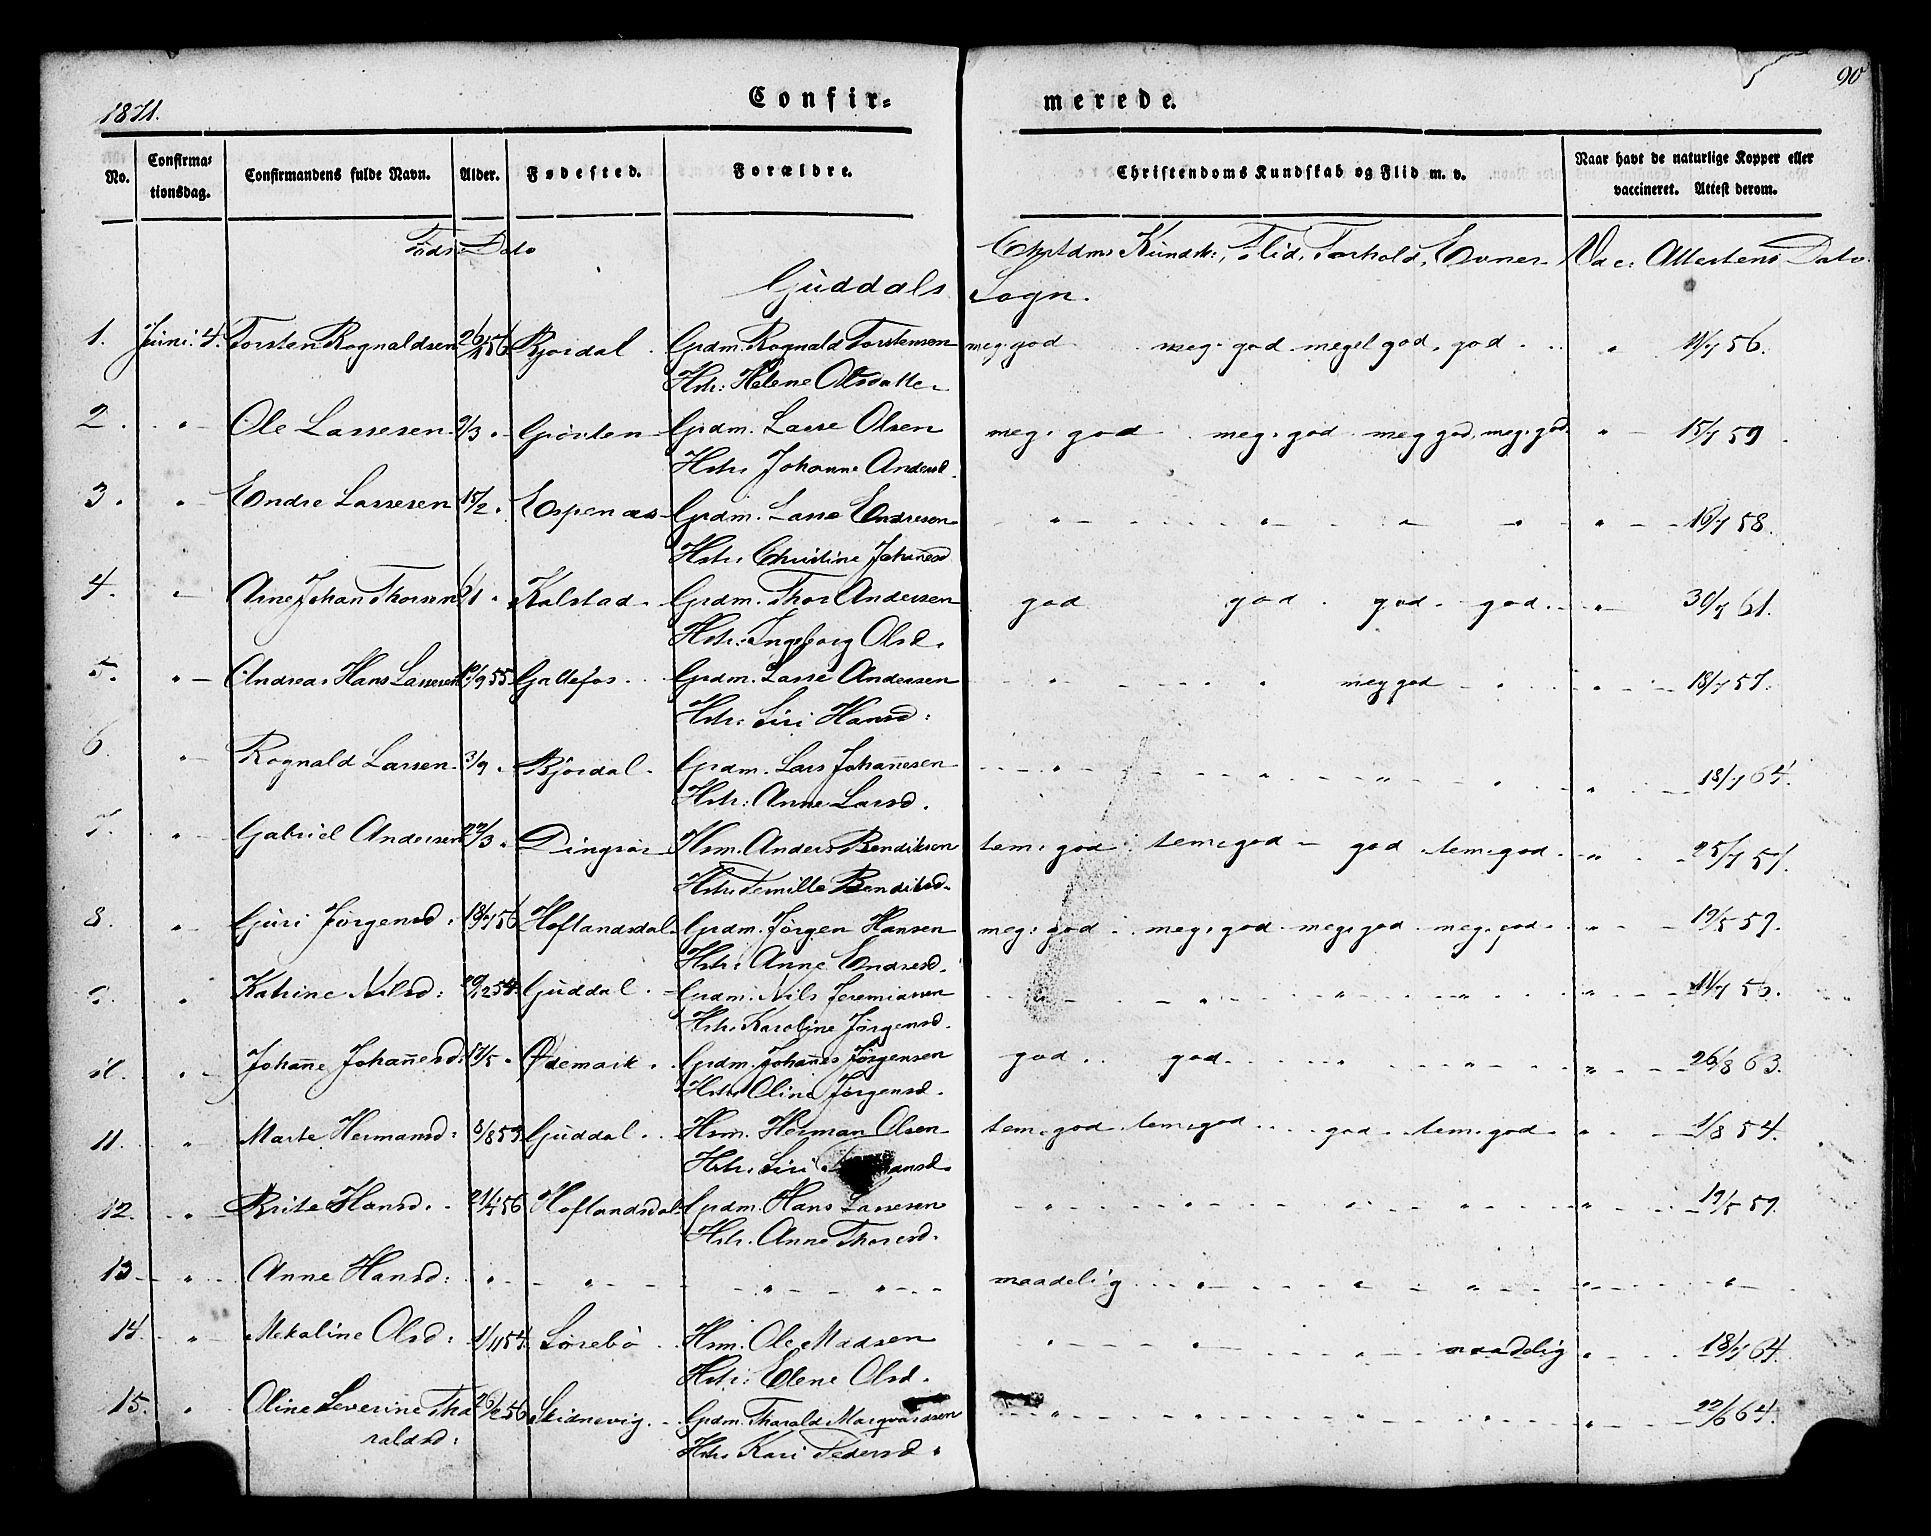 1871.
Confir=
merede.
90
No.
Confirma=
tionsdag.
Confirmandens fulde Navn.
Alder.
Fødested.
Forældre.
Christendoms Kundskab og Flid m. v.
Naar havt de naturlige Kopper eller
vaccineret. Attest derom.
Føds: Dato
Chrstdms Kundsk:, Flid, Forhold, Evner. Vac. Attestens Dato
Guddals Sogn.
1. Juni 4. Torsten Rognaldsen 56 Bjordal. Grdm. Rognald Torstensen meg. god meg. god meget god, god. " 56.
Hstr: Helene Olsdatter
2. " Ole Lassesen 9/3 " Grdm. Lasse Olsen meg: god meg: god meg god, meg: god " 15/7 59
Hstr: Johanne Andersd.
3. " Endre Lassesen 15/2 " Espenæs Grdm. Lasse Endresen " " " " " 16/7 58.
Hstr: Christine Johannesd
4. " Arne Johan Thorsen " Kalstad. Grdm. Thor Andersen god god. god. god. " 30/7 61.
Hstr: Ingeborg Olsd.
5. " Andreas Hans Lassesen 9 55 Gallefos. Grdm. Lasse Andersen " " meg god " " 18/7 57.
Hstr: Siri Hansd:
6. " Rognald Larsen 3/9 " Bjordal. Grdm. Lars Johannesen " " " " " 18/7 64.
Hstr: Anne Larsd.
7. " Gabriel Andersen 22/3 " Dingsør Hsm. Anders Bendiksen tem: god tem: god god tem: god. " 25/7 57.
Hstr: Bendiksd.
8. " Guri Jørgensd. 18/7 56 Hoflandsdal Grdm. Jørgen Hansen meg: god meg: god meg: god meg. god. " 19/5 59.
Hstr: Anne Endresd.
9. " Katrine Nilsd: 12 54 Guddal. Grdm. Nils Jeremiassen " " " " "
Hstr. Karoline Jørgensd.
" Johanne Johannesd: 17/5 " Ødemark. Grdm. Johannes Jørgensen god god " " " 26/8 63.
Hstr Oline Jørgensd.
11. " Marte Hermansd: 8/8 55 Guddal. Hsm. Herman Olsen tem: god tem: god god tem: god " 1/8 54.
Hstr. Siri
12. " Brite Hansd. 56 Hoflandsdal Grdm. Hans Lassesen " " " " " 19/5 59.
Hstr. Anne Thoresd.
13 " Anne Hansd: " " " " maadelig " " " " "
14. " Mekaline Olsd: 1/11 54. Sørebø. Hsm. Ole Madsen " " " maadelig " 18/7 64.
Hstr: Elene Olsd.
15. " Oline Severine Tha 26/2 56 Skidnevig. Grdm. Tharald Marqvardsen " " " " " 22/6 64.
raldsd:
Hstr Kari Pedersd.